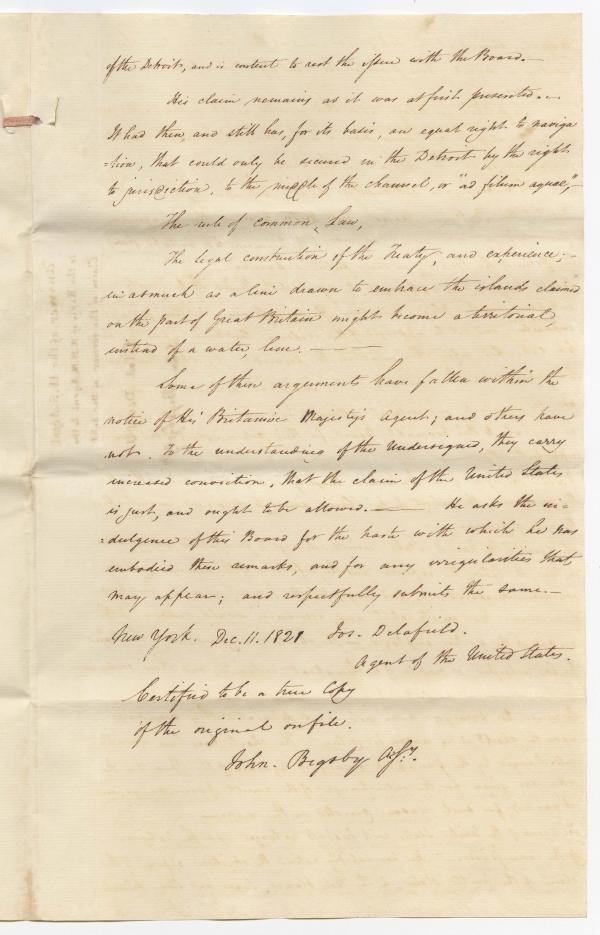 of the Detroit, and is content to rest the issue with the Board.—
His claim remains as it was at first presented.—
It had then, and still has, for its basis, an equal right to naviga
=tion, that could only be secured in the Detroit by the right
to jurisdiction, to the middle of the channel, or "ad filum aquae,"—
The rule of common Law,
The legal construction of the Treaty, and experience;—
in as much as a line drawn to embrace the islands claimed
on the part of Great Britain might become a territorial,
instead of a water, line.———
Some of these arguments have fallen within the
notice of His Britannic Majesty's Agent; and others have
not. To the understanding of the Undersigned, they carry
increased conviction, that the claim of the United States
is just, and ought to be allowed.——— He asks the in-
=dulgence of this Board for the haste with which he has
embodied these remarks, and for any irregularities that
may appear; and respectfully submits the same.—
New York. Dec. 11. 1821 Jos. Delafield.
Agent of the United States.
Certified to be a true Copy
of the original on file.
John. Bigsby Asy.